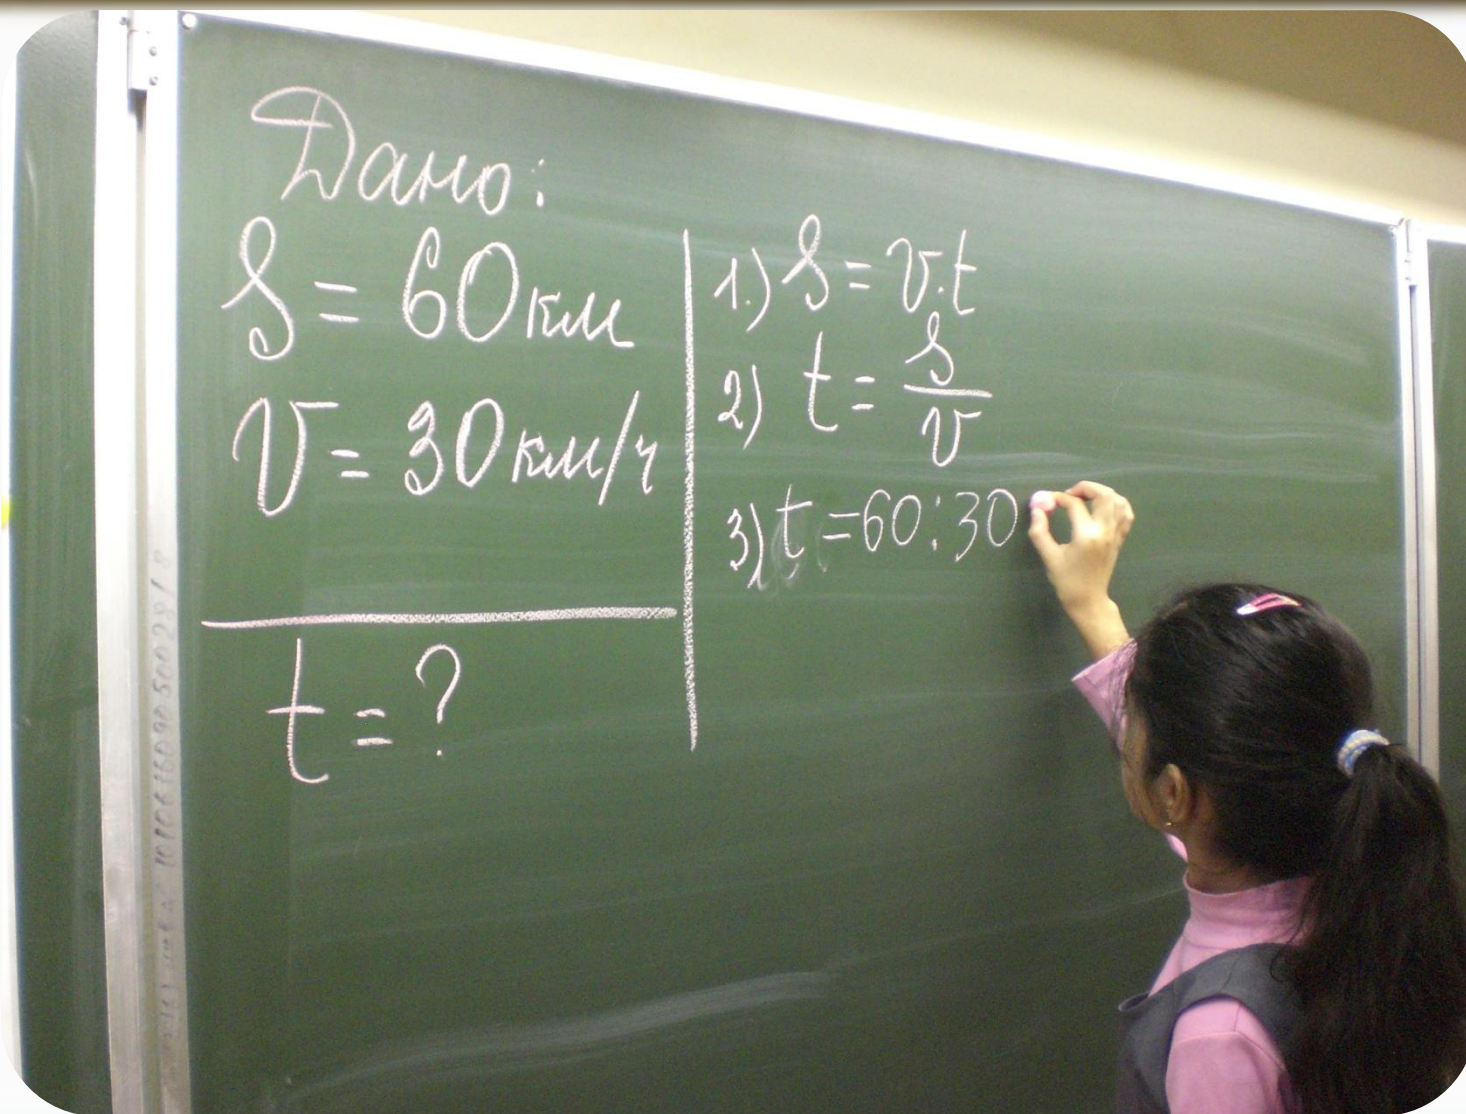 Дано:
S = 60 км
V = 30 км/ч
t = ?
1.) S = v·t
2) t = S/v
3) t = 60 : 30